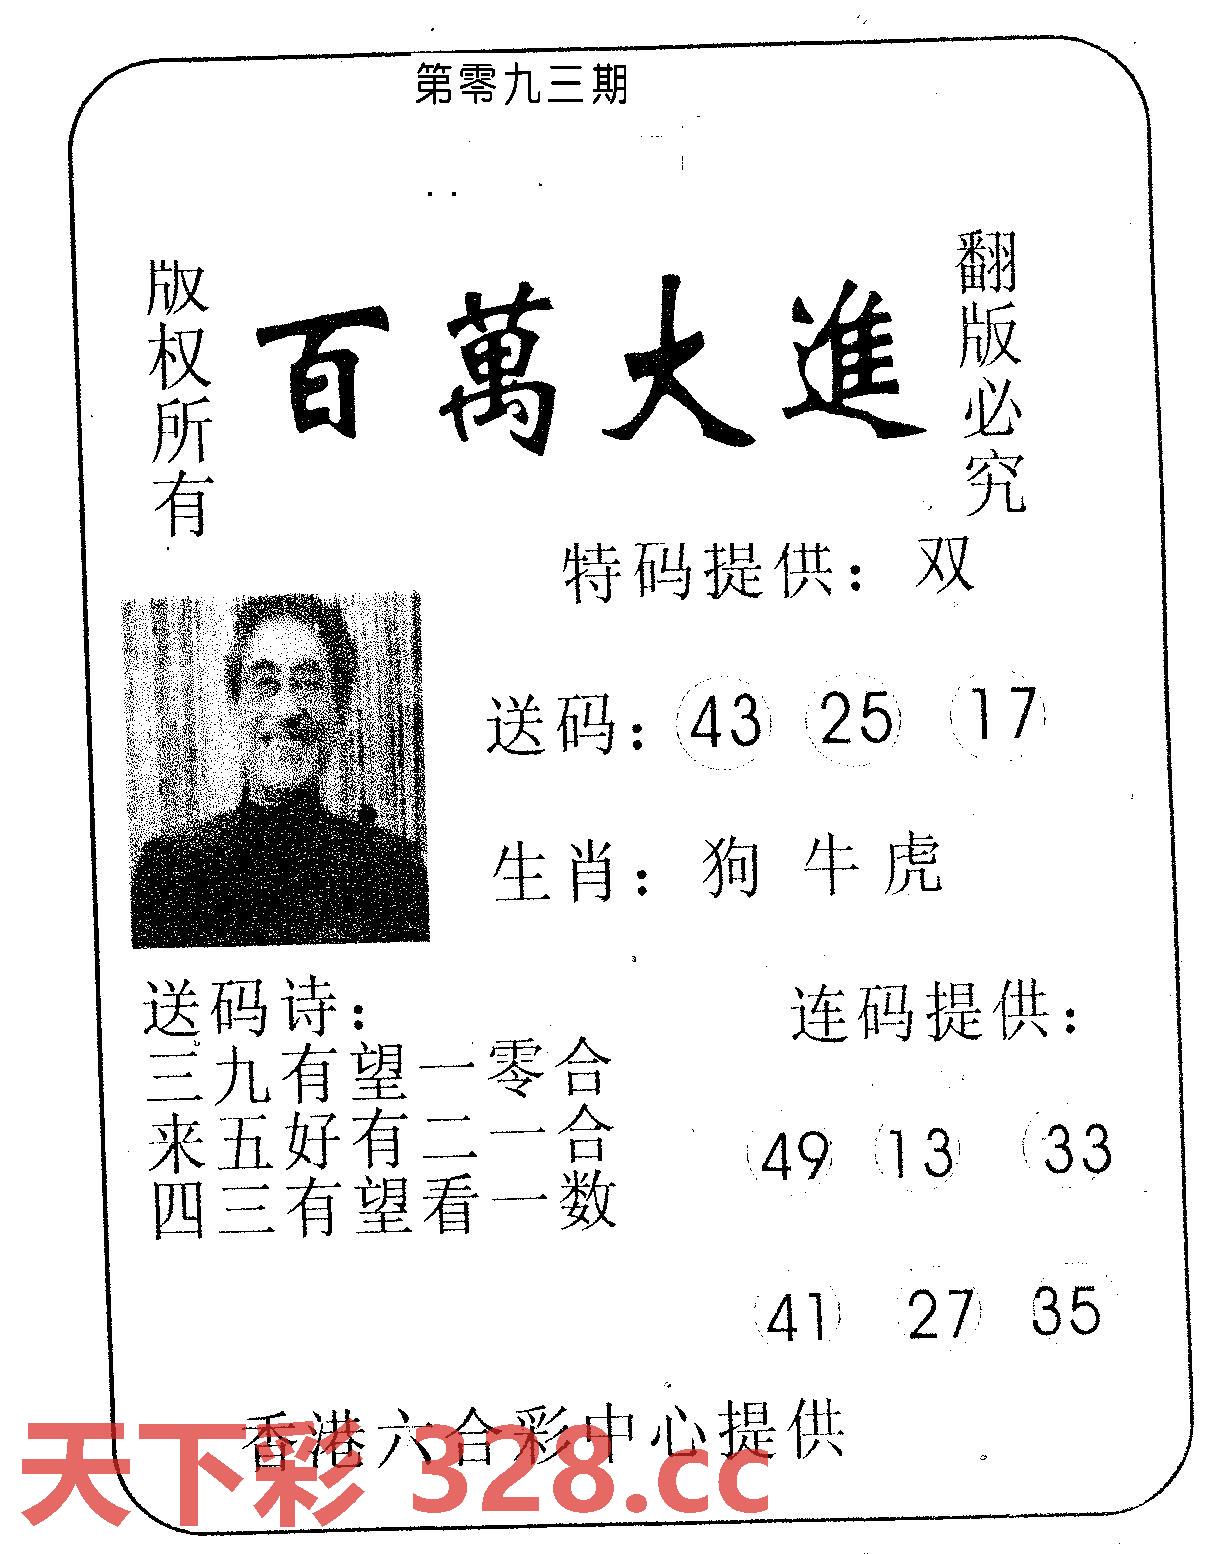 第零九三期
版权所有
百萬大進
翻版必究
特码提供：双
送码：43 25 17
生肖：狗 牛 虎
送码诗：
三九有望一零合
来五好有二一合
四三有望看一数
连码提供：
49 13 33
41 27 35
香港六合彩中心提供
天下彩 328.cc